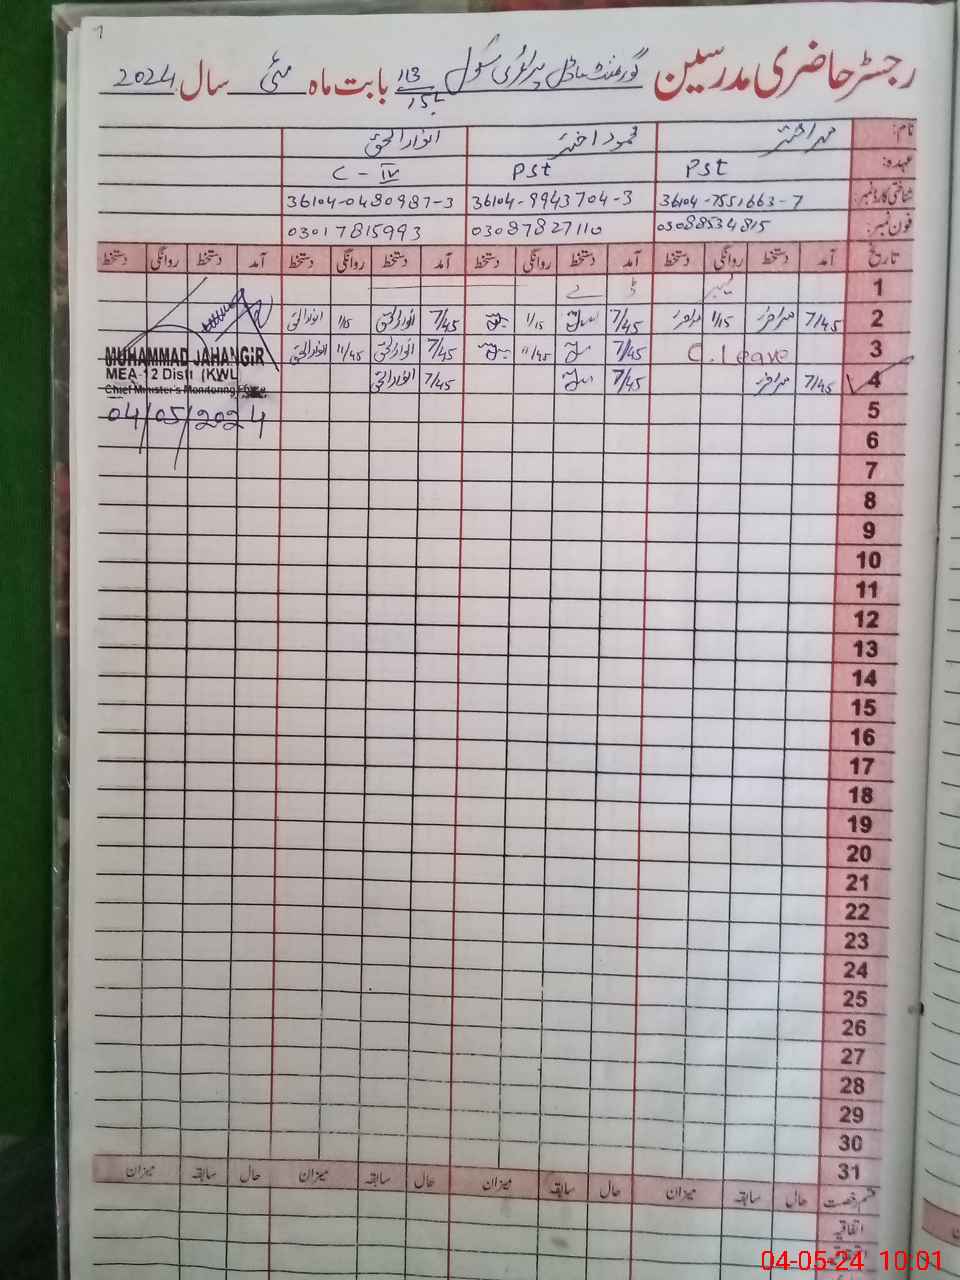 رجسٹر حاضری مدرسین گورنمنٹ ماڈل پرائمری سکول 113/15L بابت ماہ مئی سال 2024
نام: اختر محمود اختر انوار الحق
عہدہ: Pst Pst C - IV
شناختی کارڈ نمبر: 36104-7551663-7 36104-9943704-3 36104-0480987-3
فون نمبر: 03088534815 03087827110 03017815993
تاریخ آمد دستخط روانگی دستخط آمد دستخط روانگی دستخط آمد دستخط روانگی دستخط آمد دستخط روانگی دستخط
1 لیبر ڈے
2 7/45 1/15 7/45 1/15 7/45 انوار الحق 1/15 انوار الحق
3 C. Leave 7/45 11/45 7/45 انوار الحق 11/45 انوار الحق
4 7/45 7/45 7/45 انوار الحق
MUHAMMAD JAHANGIR
MEA-12 Distt (KWL)
Chief Minister's Monitoring Force
04/05/2024
5
6
7
8
9
10
11
12
13
14
15
16
17
18
19
20
21
22
23
24
25
26
27
28
29
30
31
قسم رخصت حال سابقہ میزان حال سابقہ میزان حال سابقہ میزان حال سابقہ میزان
اتفاقیہ
04-05-24 10:01